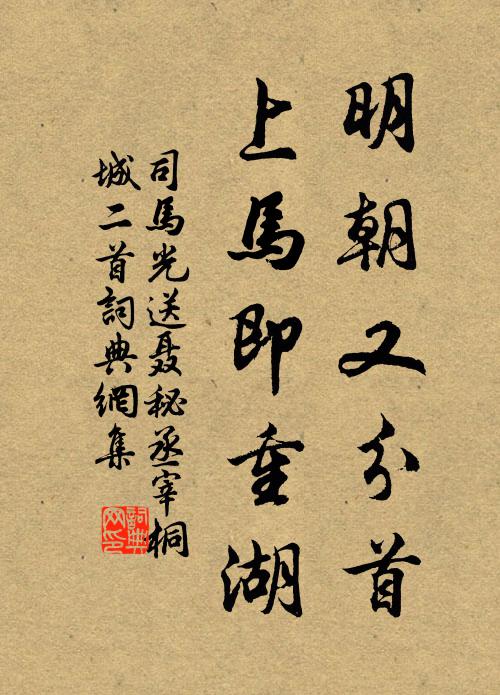 明朝又分首
上馬即重湖
司馬光送聂秘丞宰桐
城二首詞典網集
詞典
网印